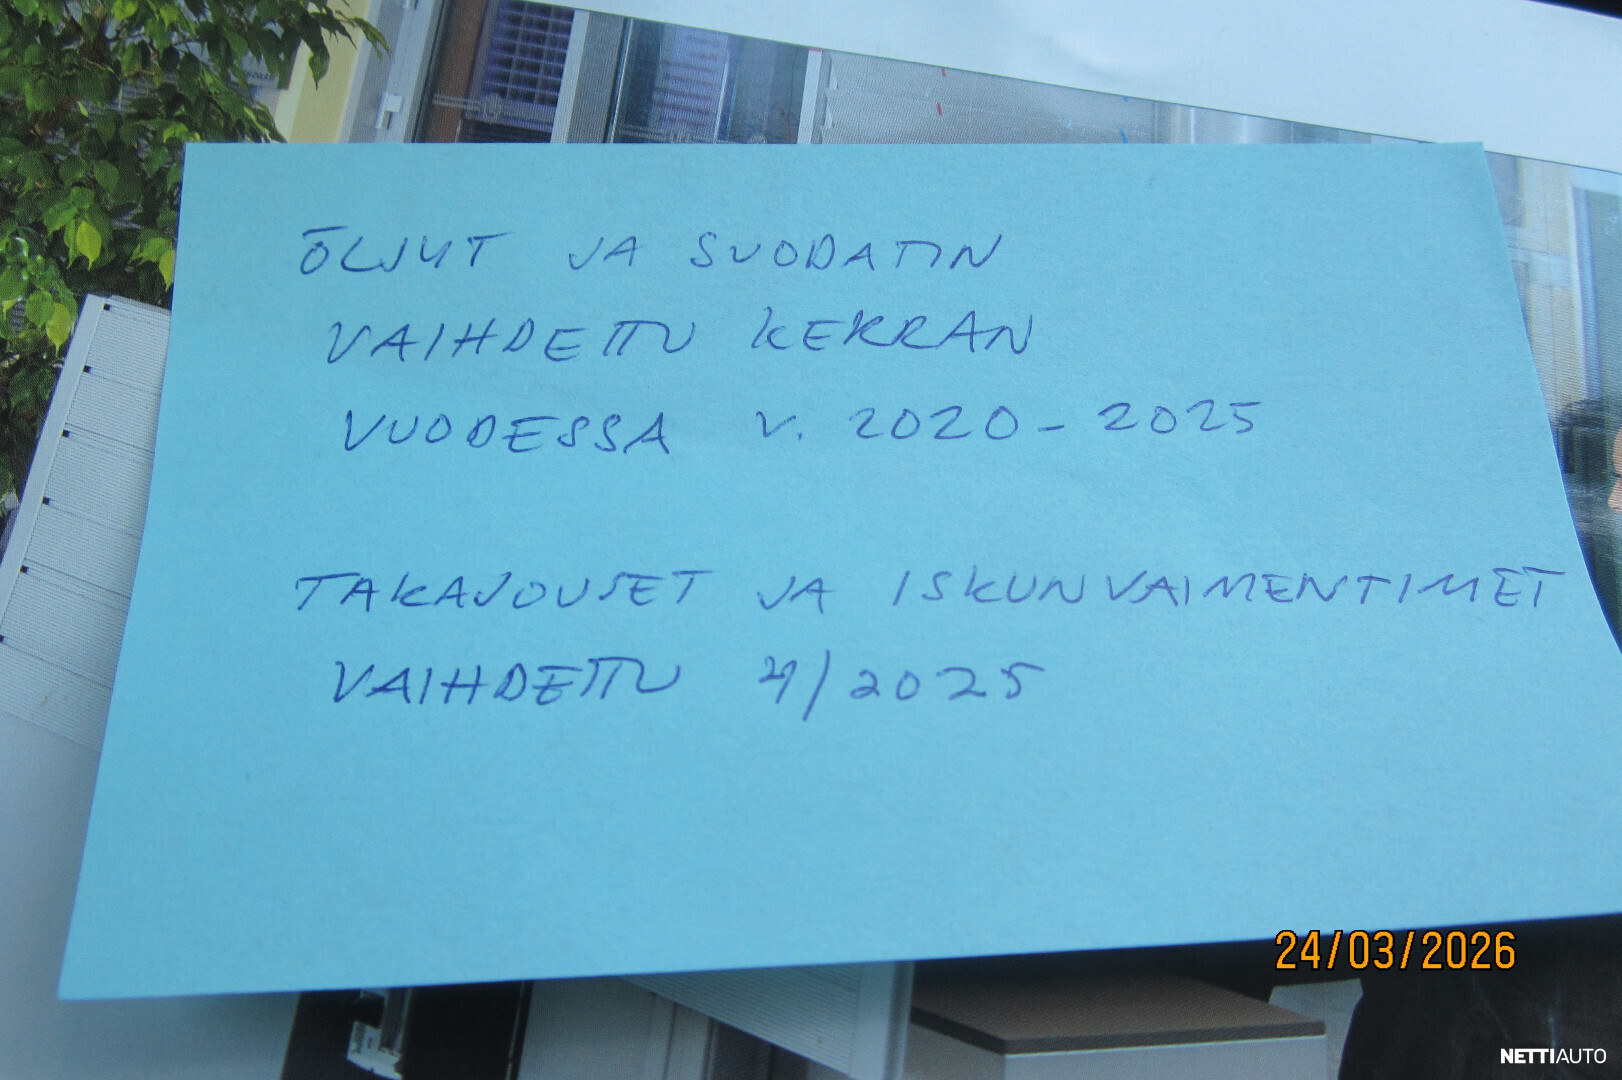 ÖLJYT JA SUODATIN
VAIHDETTU KERRAN
VUODESSA V. 2020 - 2025
TAKAJOUSET JA ISKUNVAIMENTIMET
VAIHDETTU 4/2025
24/03/2026
NETTIAUTO